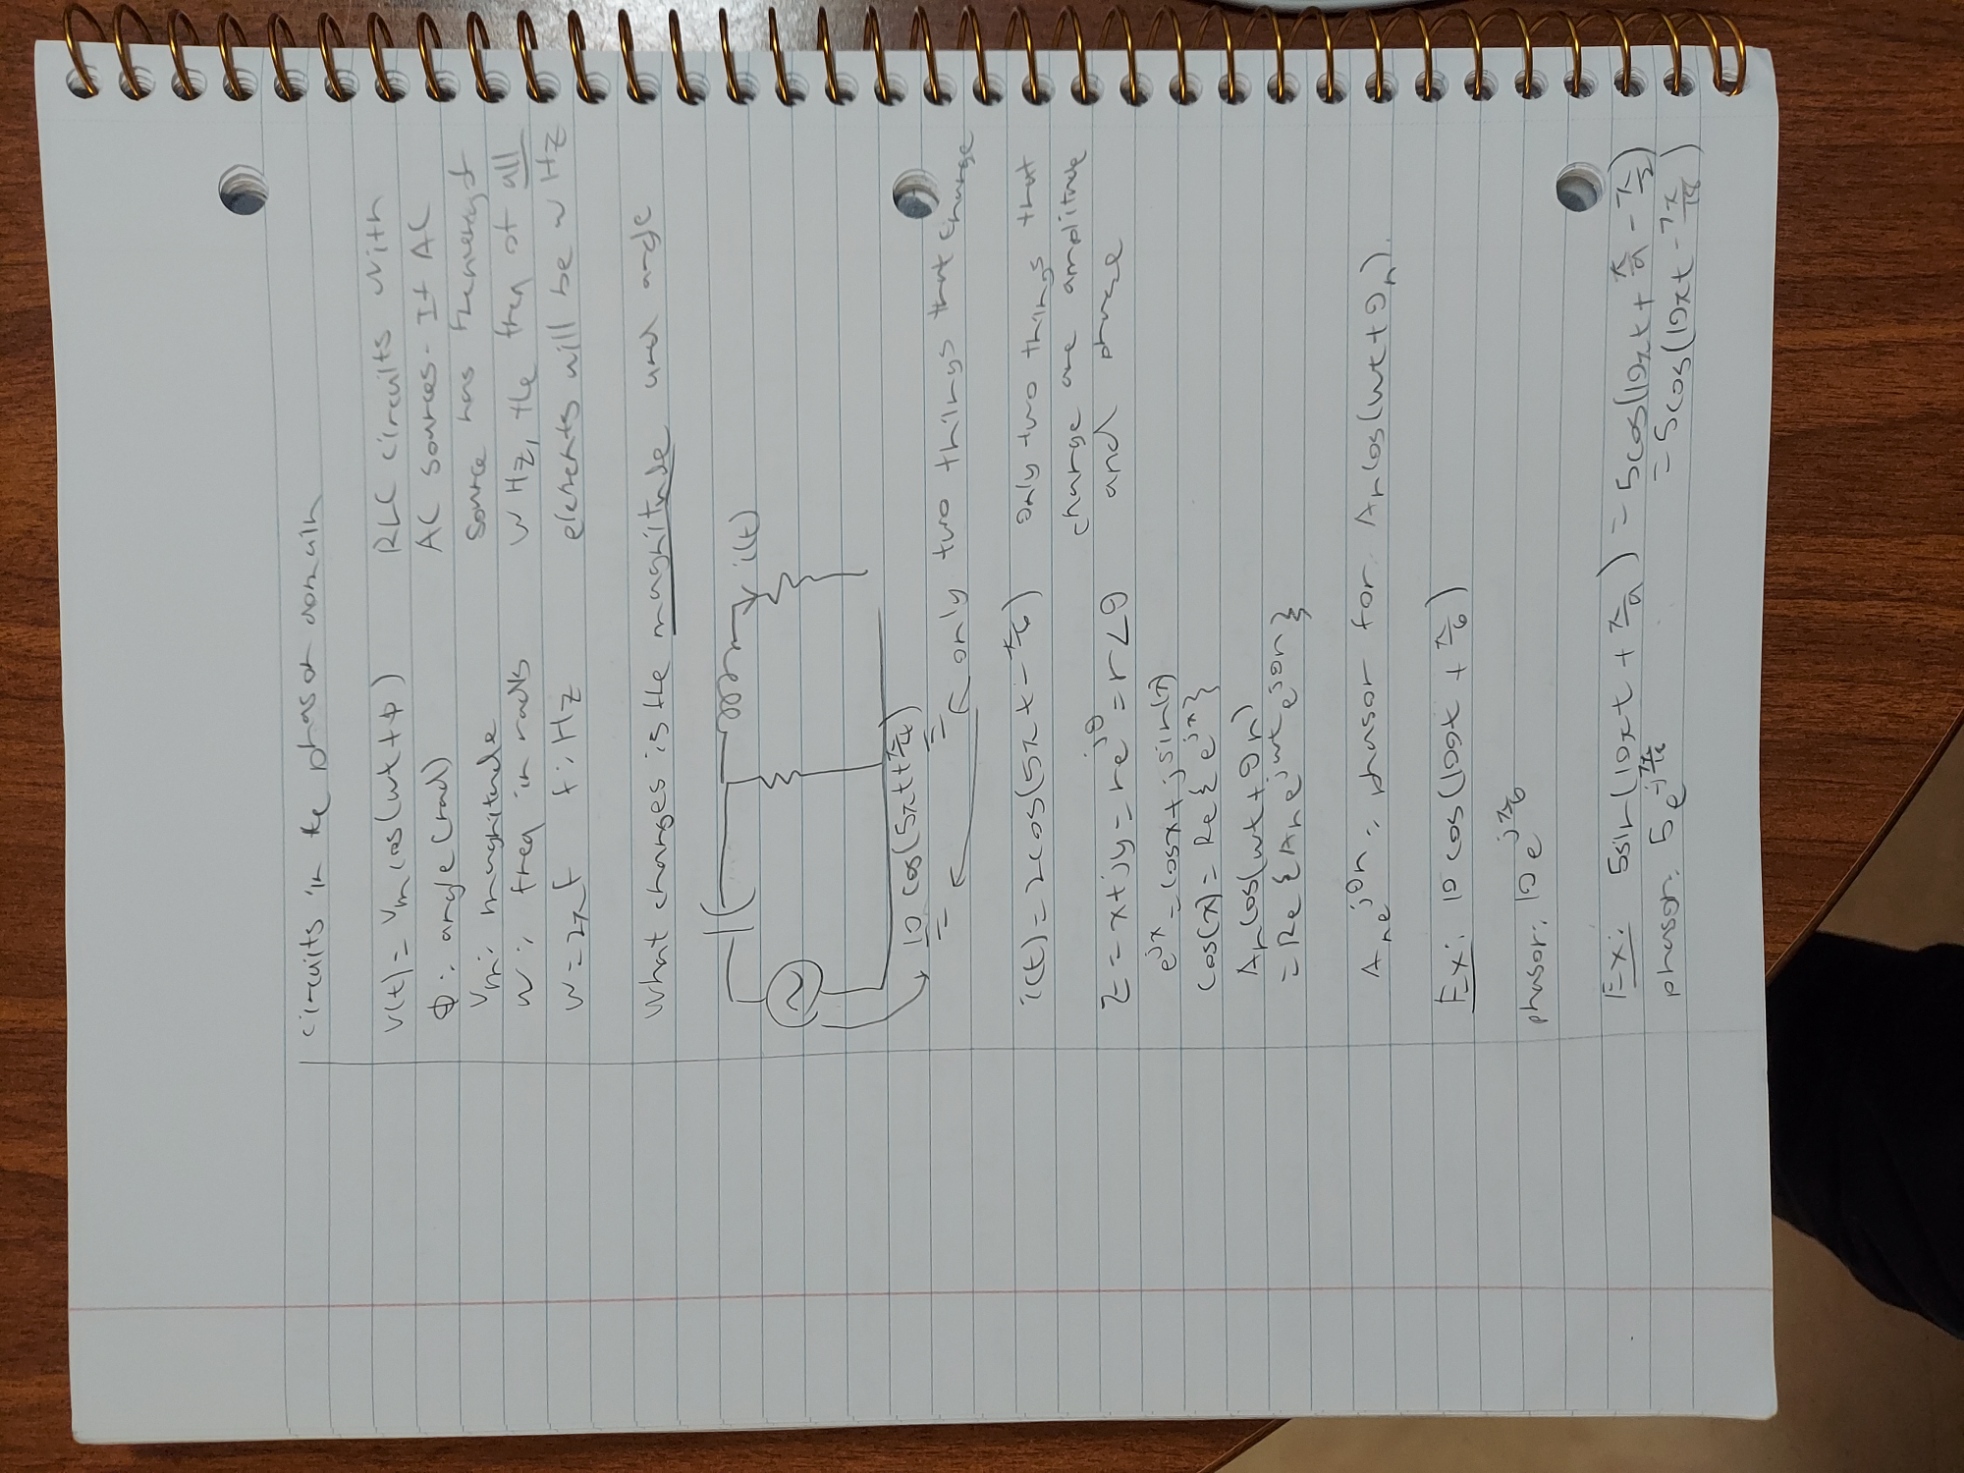 circuits in the phasor domain
v(t) = Vm cos(wt + ϕ)
ϕ: angle (rad)
Vm: magnitude
w: freq in rad/s
w = 2πf f: Hz
RLC circuits with
AC sources. If AC
source has frequency of
w Hz, the freq of all
elements will be w Hz
What changes is the magnitude and angle
i(t)
10 cos(5πt + π/4)
only two things that change
i(t) = 2cos(5πt - π/6)
only two things that
change are amplitude
and phase
z = x + jy = re^jθ = r∠θ
e^jx = cosx + jsin(x)
cos(x) = Re{e^jx}
An cos(wt + θn)
= Re{An e^jwt e^jθn}
An e^jθn : phasor for An cos(wt + θn).
Ex: 10 cos(100t + π/6)
phasor: 10 e^jπ/6
Ex: 5sin(10πt + π/9) = 5cos(10πt + π/9 - π/2)
= 5cos(10πt - 7π/18)
phasor: 5 e^-j7π/18